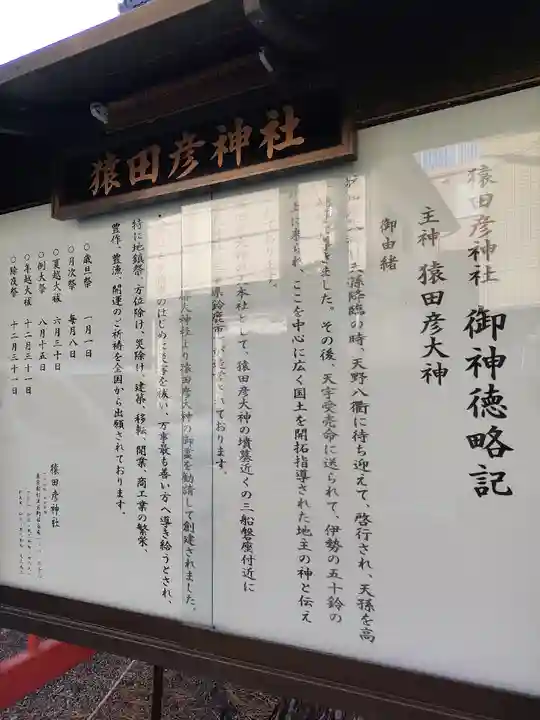 猿田彦神社
猿田彦神社 御神徳略記
主神 猿田彦大神
御由緒
天孫降臨の時、天野八衢に待ち迎えて、啓行され、天孫を高
ました。その後、天宇受売命に送られて、伊勢の五十鈴の
上に来られ、ここを中心に広く国土を開拓指導された地主の神と伝え
本社として、猿田彦大神の墳墓近くの三船磐座付近に
県鈴鹿市
ております。
より猿田彦大神の御霊を勧請して創建されました。
のはじめに災害を祓い、万事最も善い方へ導き給うとされ、
特に地鎮祭、方位除け、災除け、建築、移転、開業、商工業の繁栄、
豊作、豊漁、開運のご祈祷を全国から出願されております。
○歳旦祭 一月一日
○月次祭 毎月八日
○夏越大祓 六月三十日
○例大祭 八月十五日
○年越大祓 十二月三十一日
○除夜祭 十二月三十一日
猿田彦神社